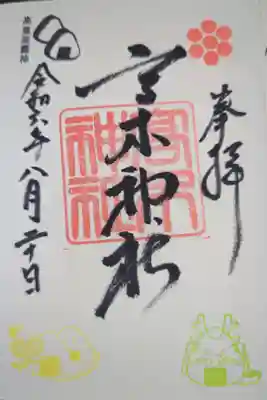 奉拝
高木神社
高木神社
令和六年八月二十日